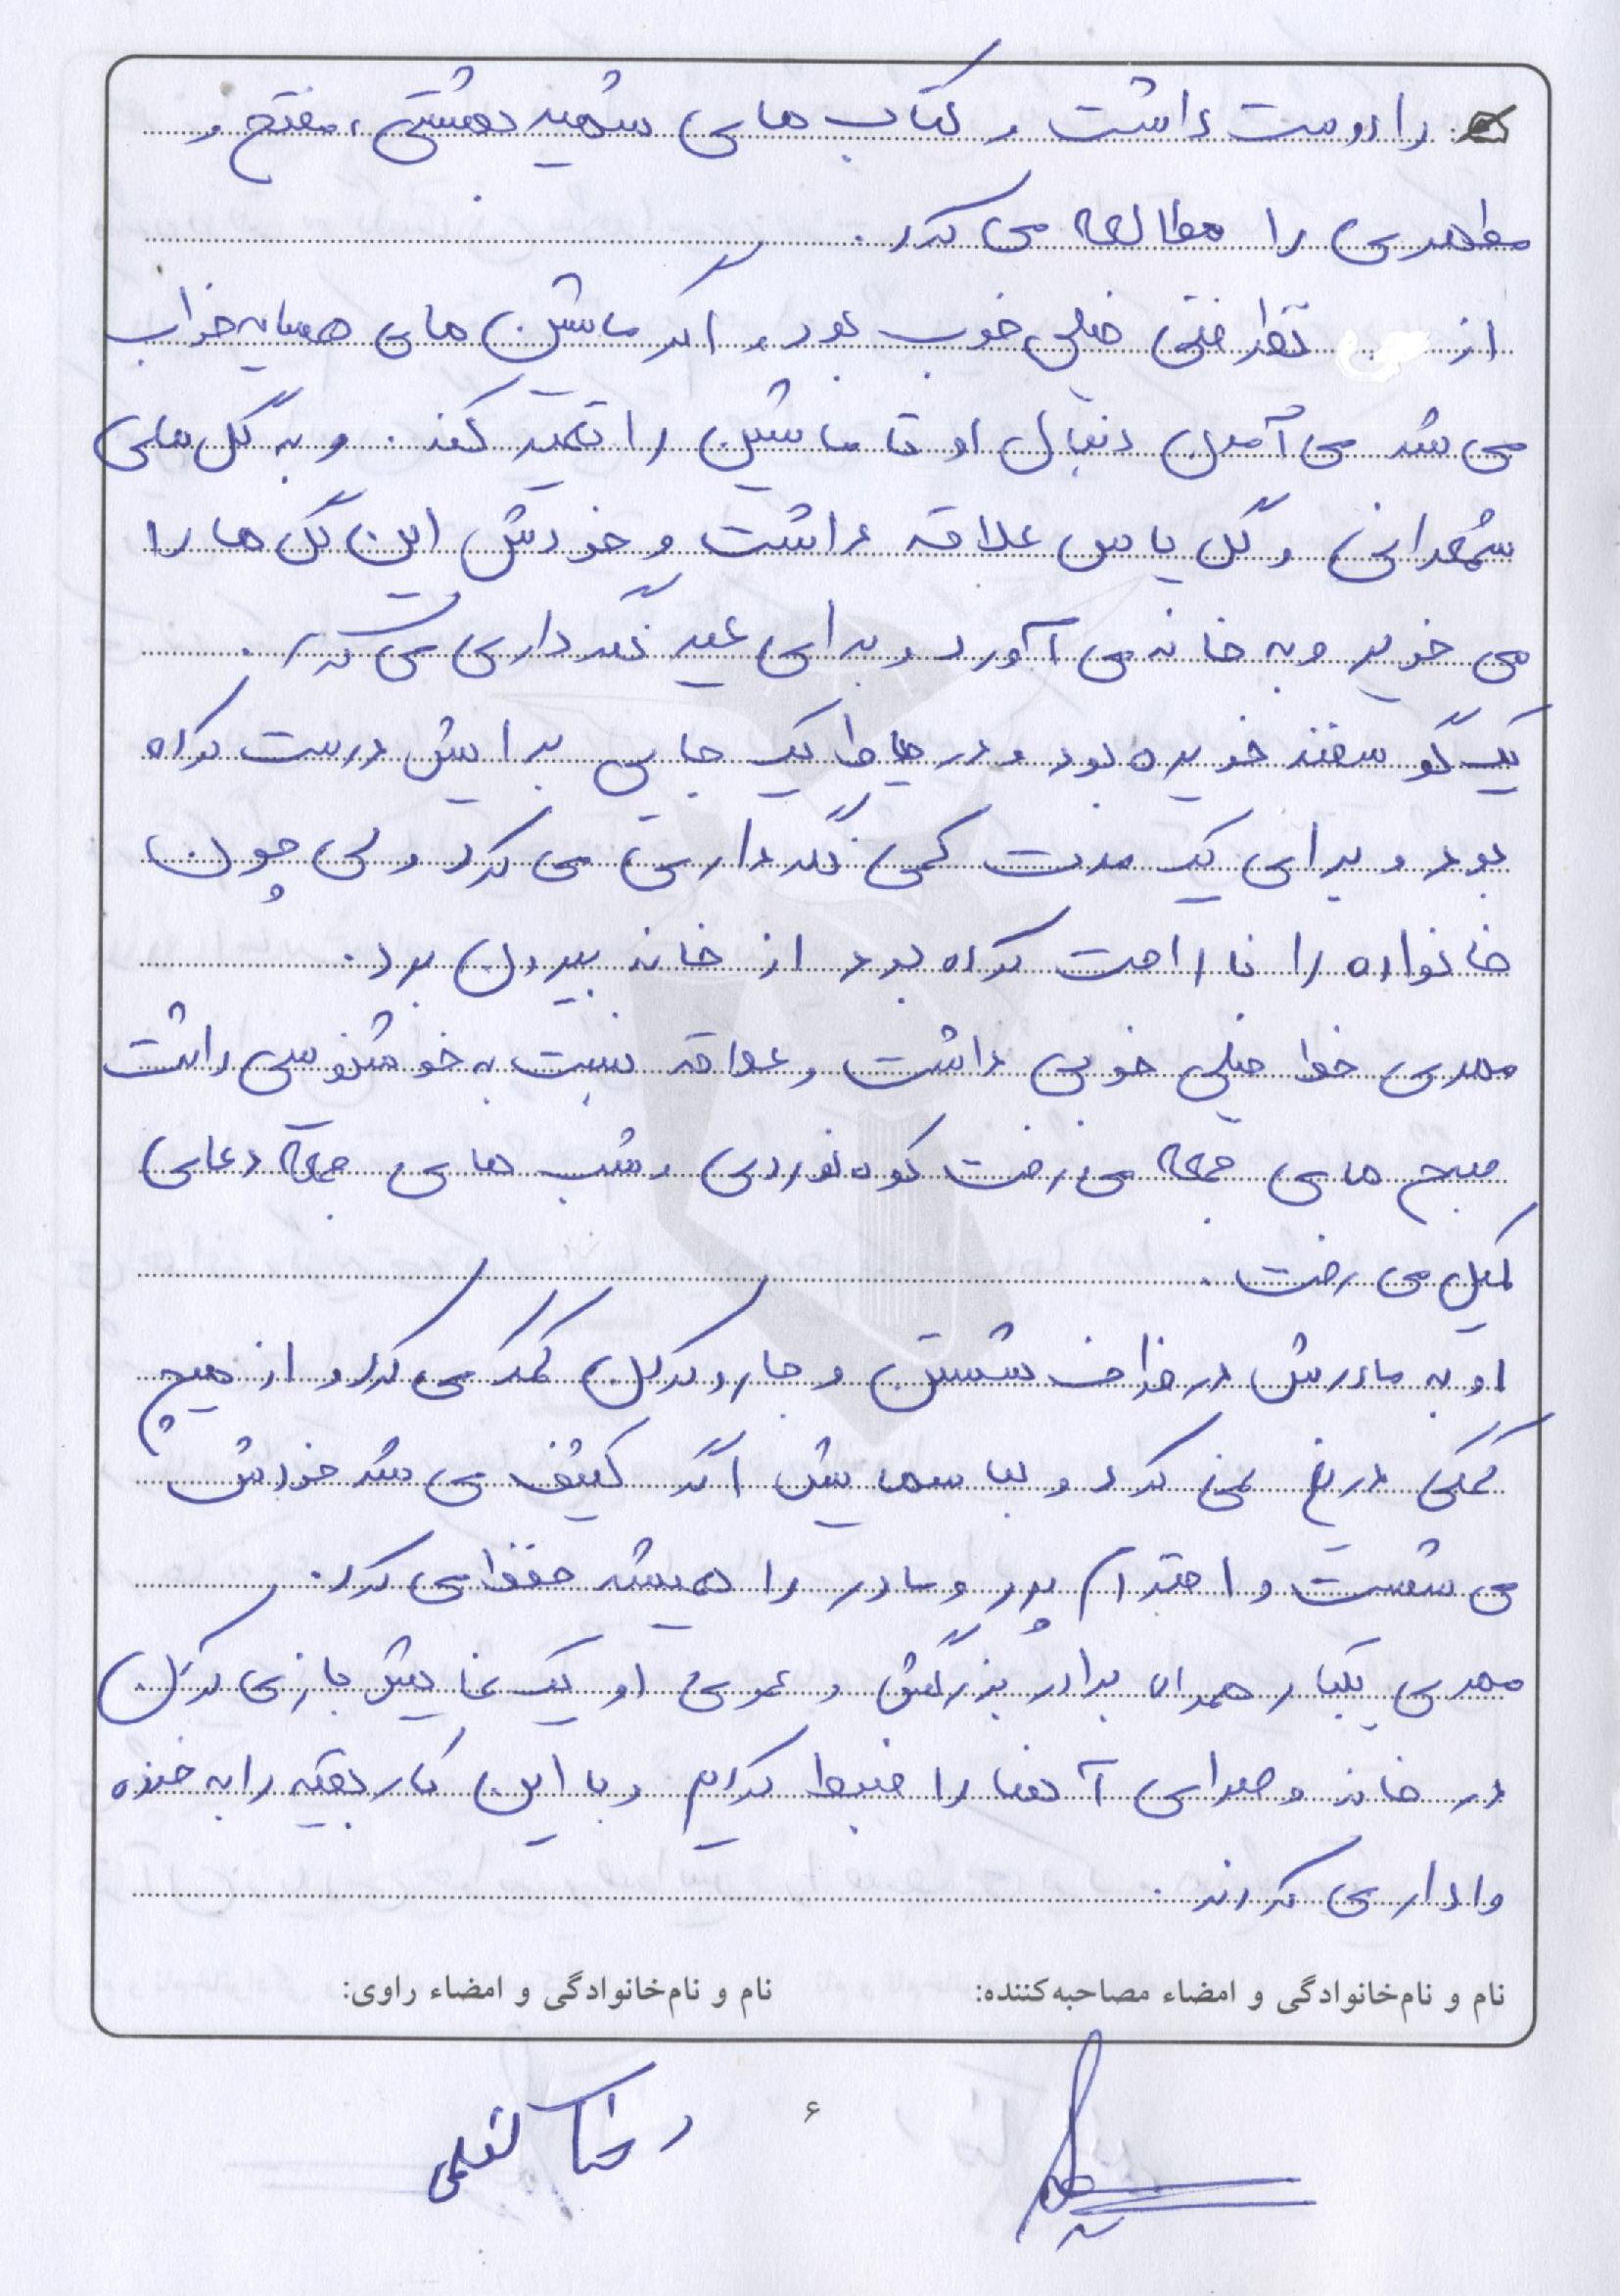 را دوست داشت و کتاب های شهید بهشتی، مفتح و
مطهری را مطالعه می کرد.
از نظر فنی خیلی خوب بود و اگر ماشین های همسایه خراب
می شد می آمدن دنبال او تا ماشین را تعمیر کند. و به گل های
شمعدانی و گل یاس علاقه داشت و خودش این گل ها را
می خرید و به خانه می آورد و برای عید نگهداری می کرد.
یک گوسفند خریده بود و در حیاط یک جایی برایش درست کرده
بود و برای یک مدت کمی نگهداری می کرد ولی چون
خانواده را ناراحت کرده بود از خانه بیرون برد.
مهدی خط خیلی خوبی داشت و علاقه نسبت به خوشنویسی داشت
صبح های جمعه می رفت کوه نوردی و شب های جمعه دعای
کمیل می رفت.
او به مادرش در ظرف شستن و جارو کردن کمک می کرد و از هیچ
کمکی دریغ نمی کرد و لباسهایش اگر کثیف می شد خودش
می شست و احترام پدر و مادر را همیشه حفظ می کرد.
مهدی یکبار همراه برادر بزرگش و عموی او یک نمایش بازی کردن
در خانه و صدای آنها را ضبط کردیم و با این کار بقیه را به خنده
وادار می کردند.
نام و نام‌خانوادگی و امضاء مصاحبه‌کننده:
نام و نام‌خانوادگی و امضاء راوی:
۶